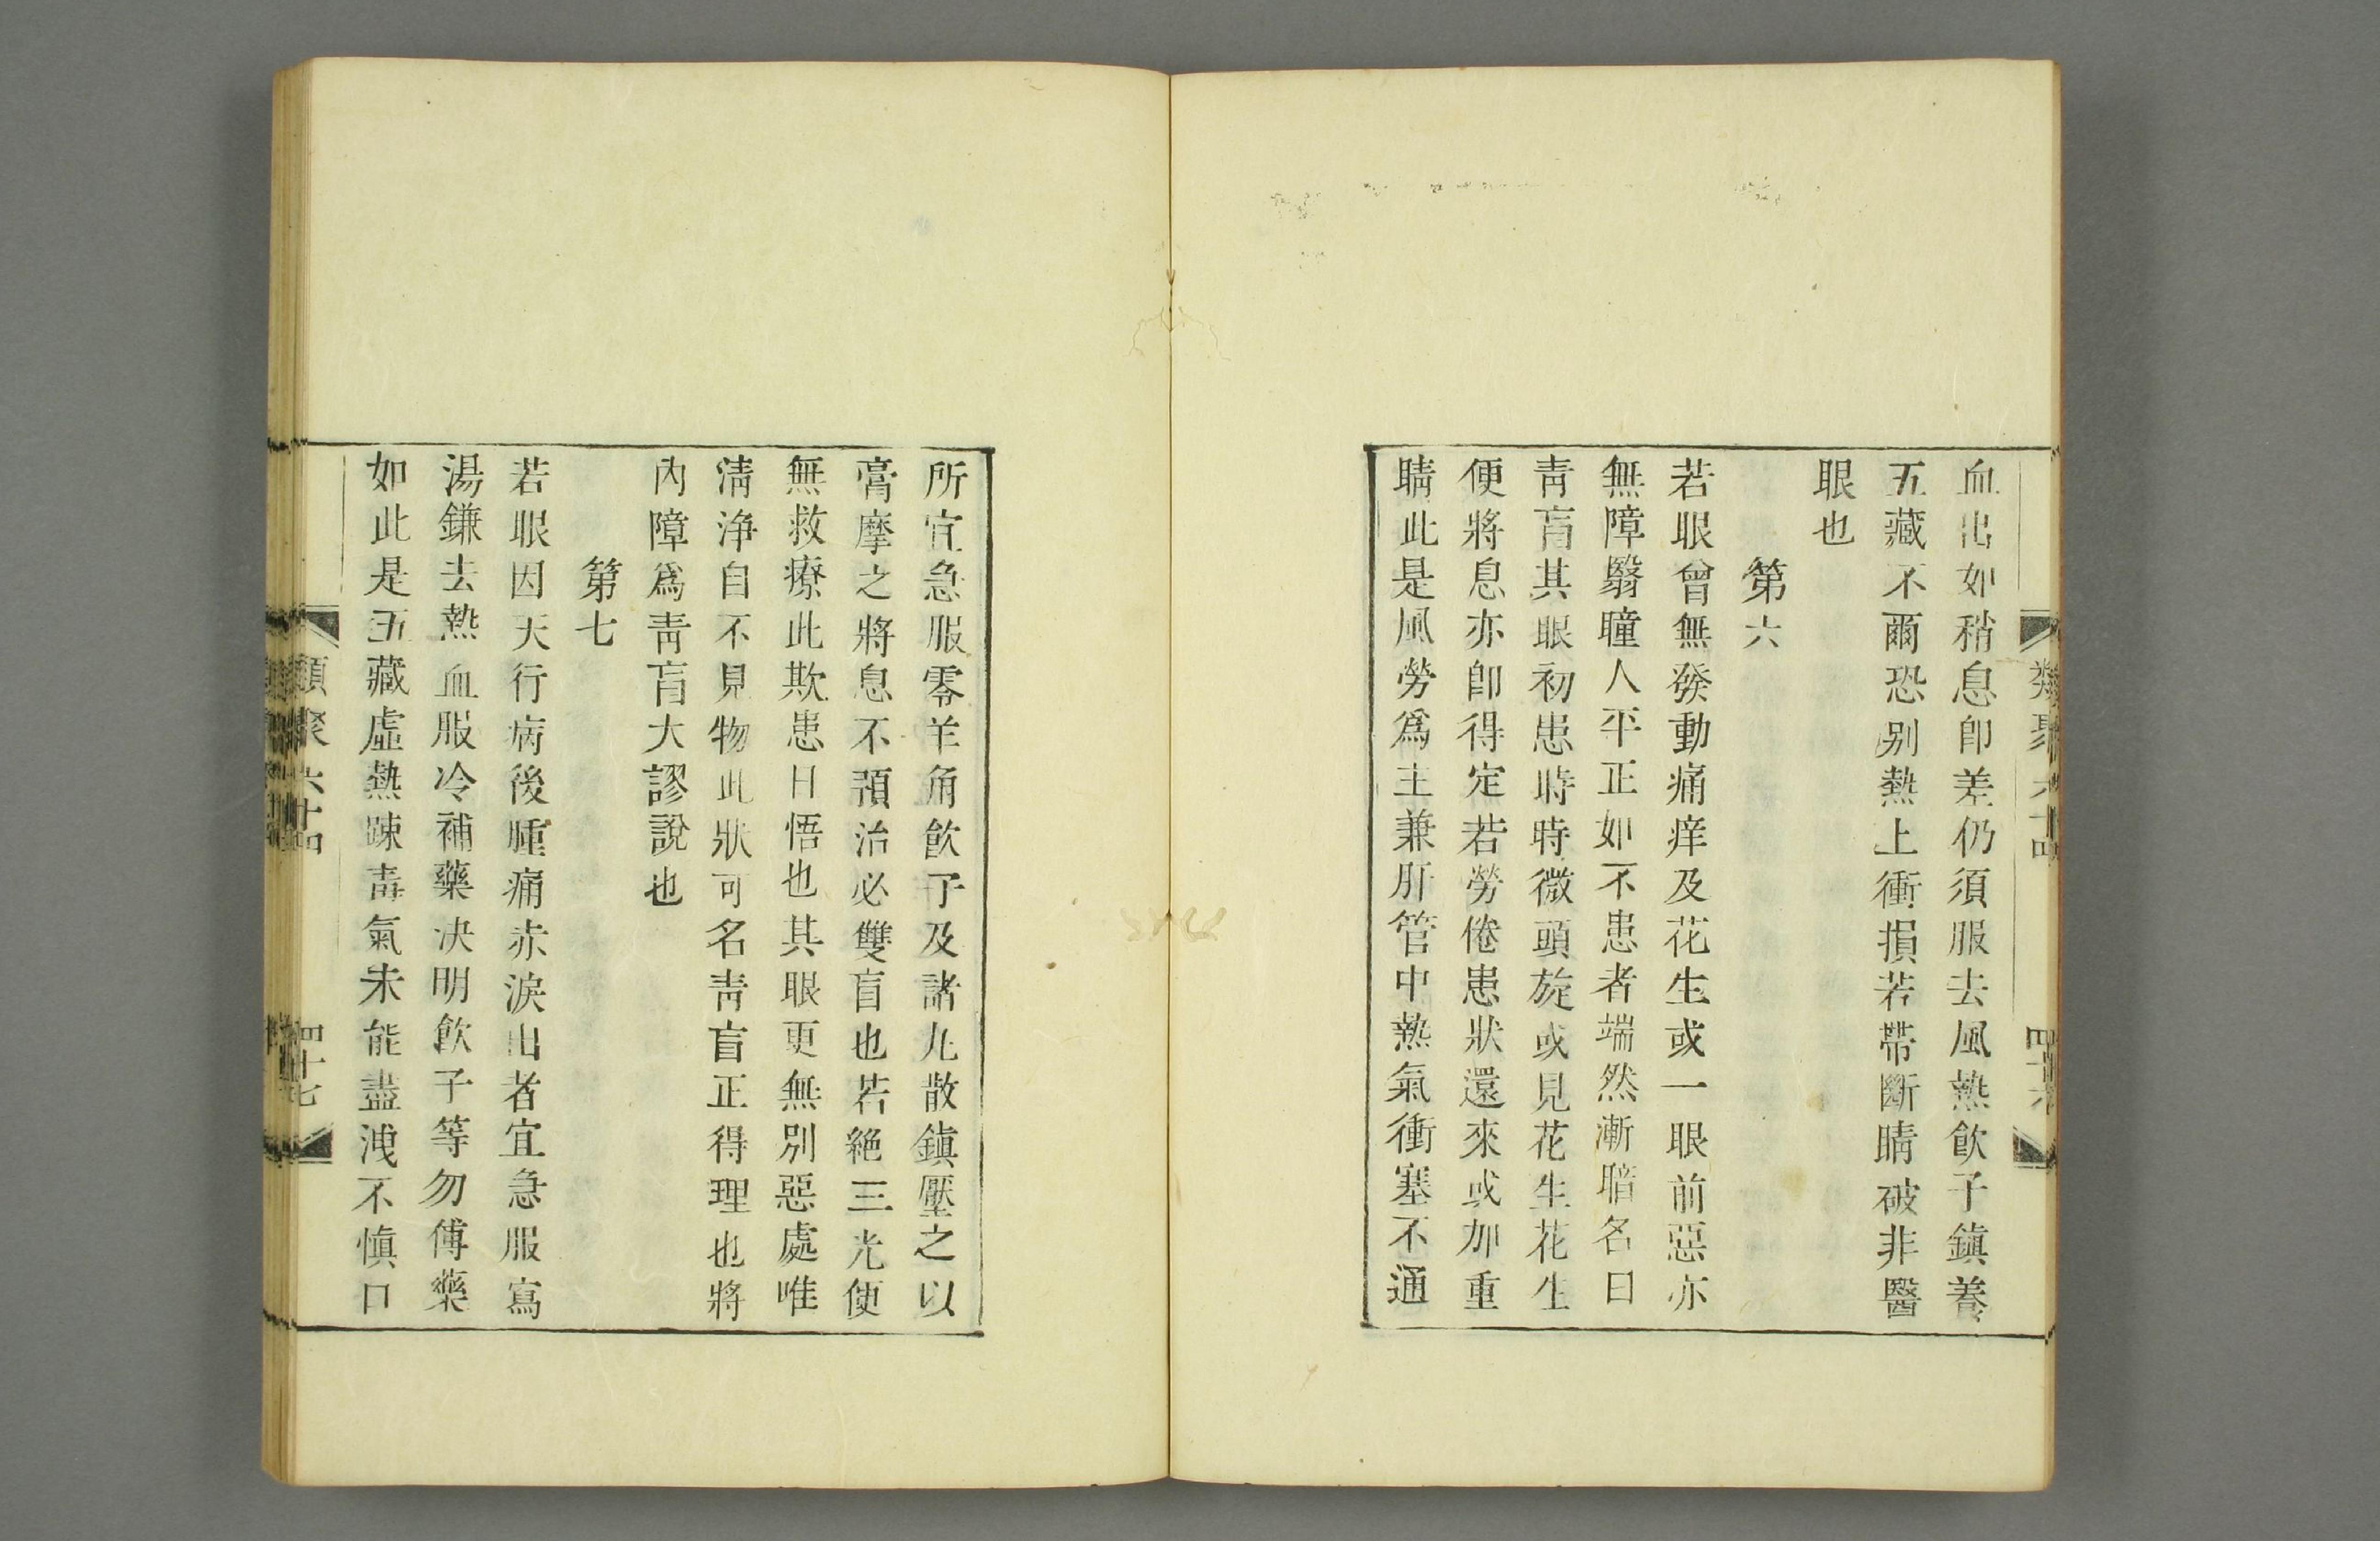 類聚六十四 四十六
血出如稍息卽差仍須服去風熱飮子鎭養
五藏不爾恐别熱上衝損若帶斷睛破非醫
眼也
第六
若眼曾無發動痛痒及花生或一眼前惡亦
無障翳瞳人平正如不患者端然漸暗名曰
靑盲其眼初患時時微頭旋或見花生花生
便將息亦卽得定若勞倦患狀還來或加重
睛此是風勞爲主兼肝管中熱氣衝塞不通
所宜急服零羊角飮子及諸丸散鎭壓之以
膏摩之將息不預治必雙盲也若絶三光便
無救療此欺患日悟也其眼更無別惡處唯
淸浄自不見物此狀可名靑盲正得理也將
內障爲靑盲大謬說也
第七
若眼因天行病後腫痛赤淚出者宜急服寫
湯鎌去熱血服冷補藥决明飮子等勿傅藥
如此是五藏虛熱踈毒氣未能盡洩不愼口
類聚六十四 四十七